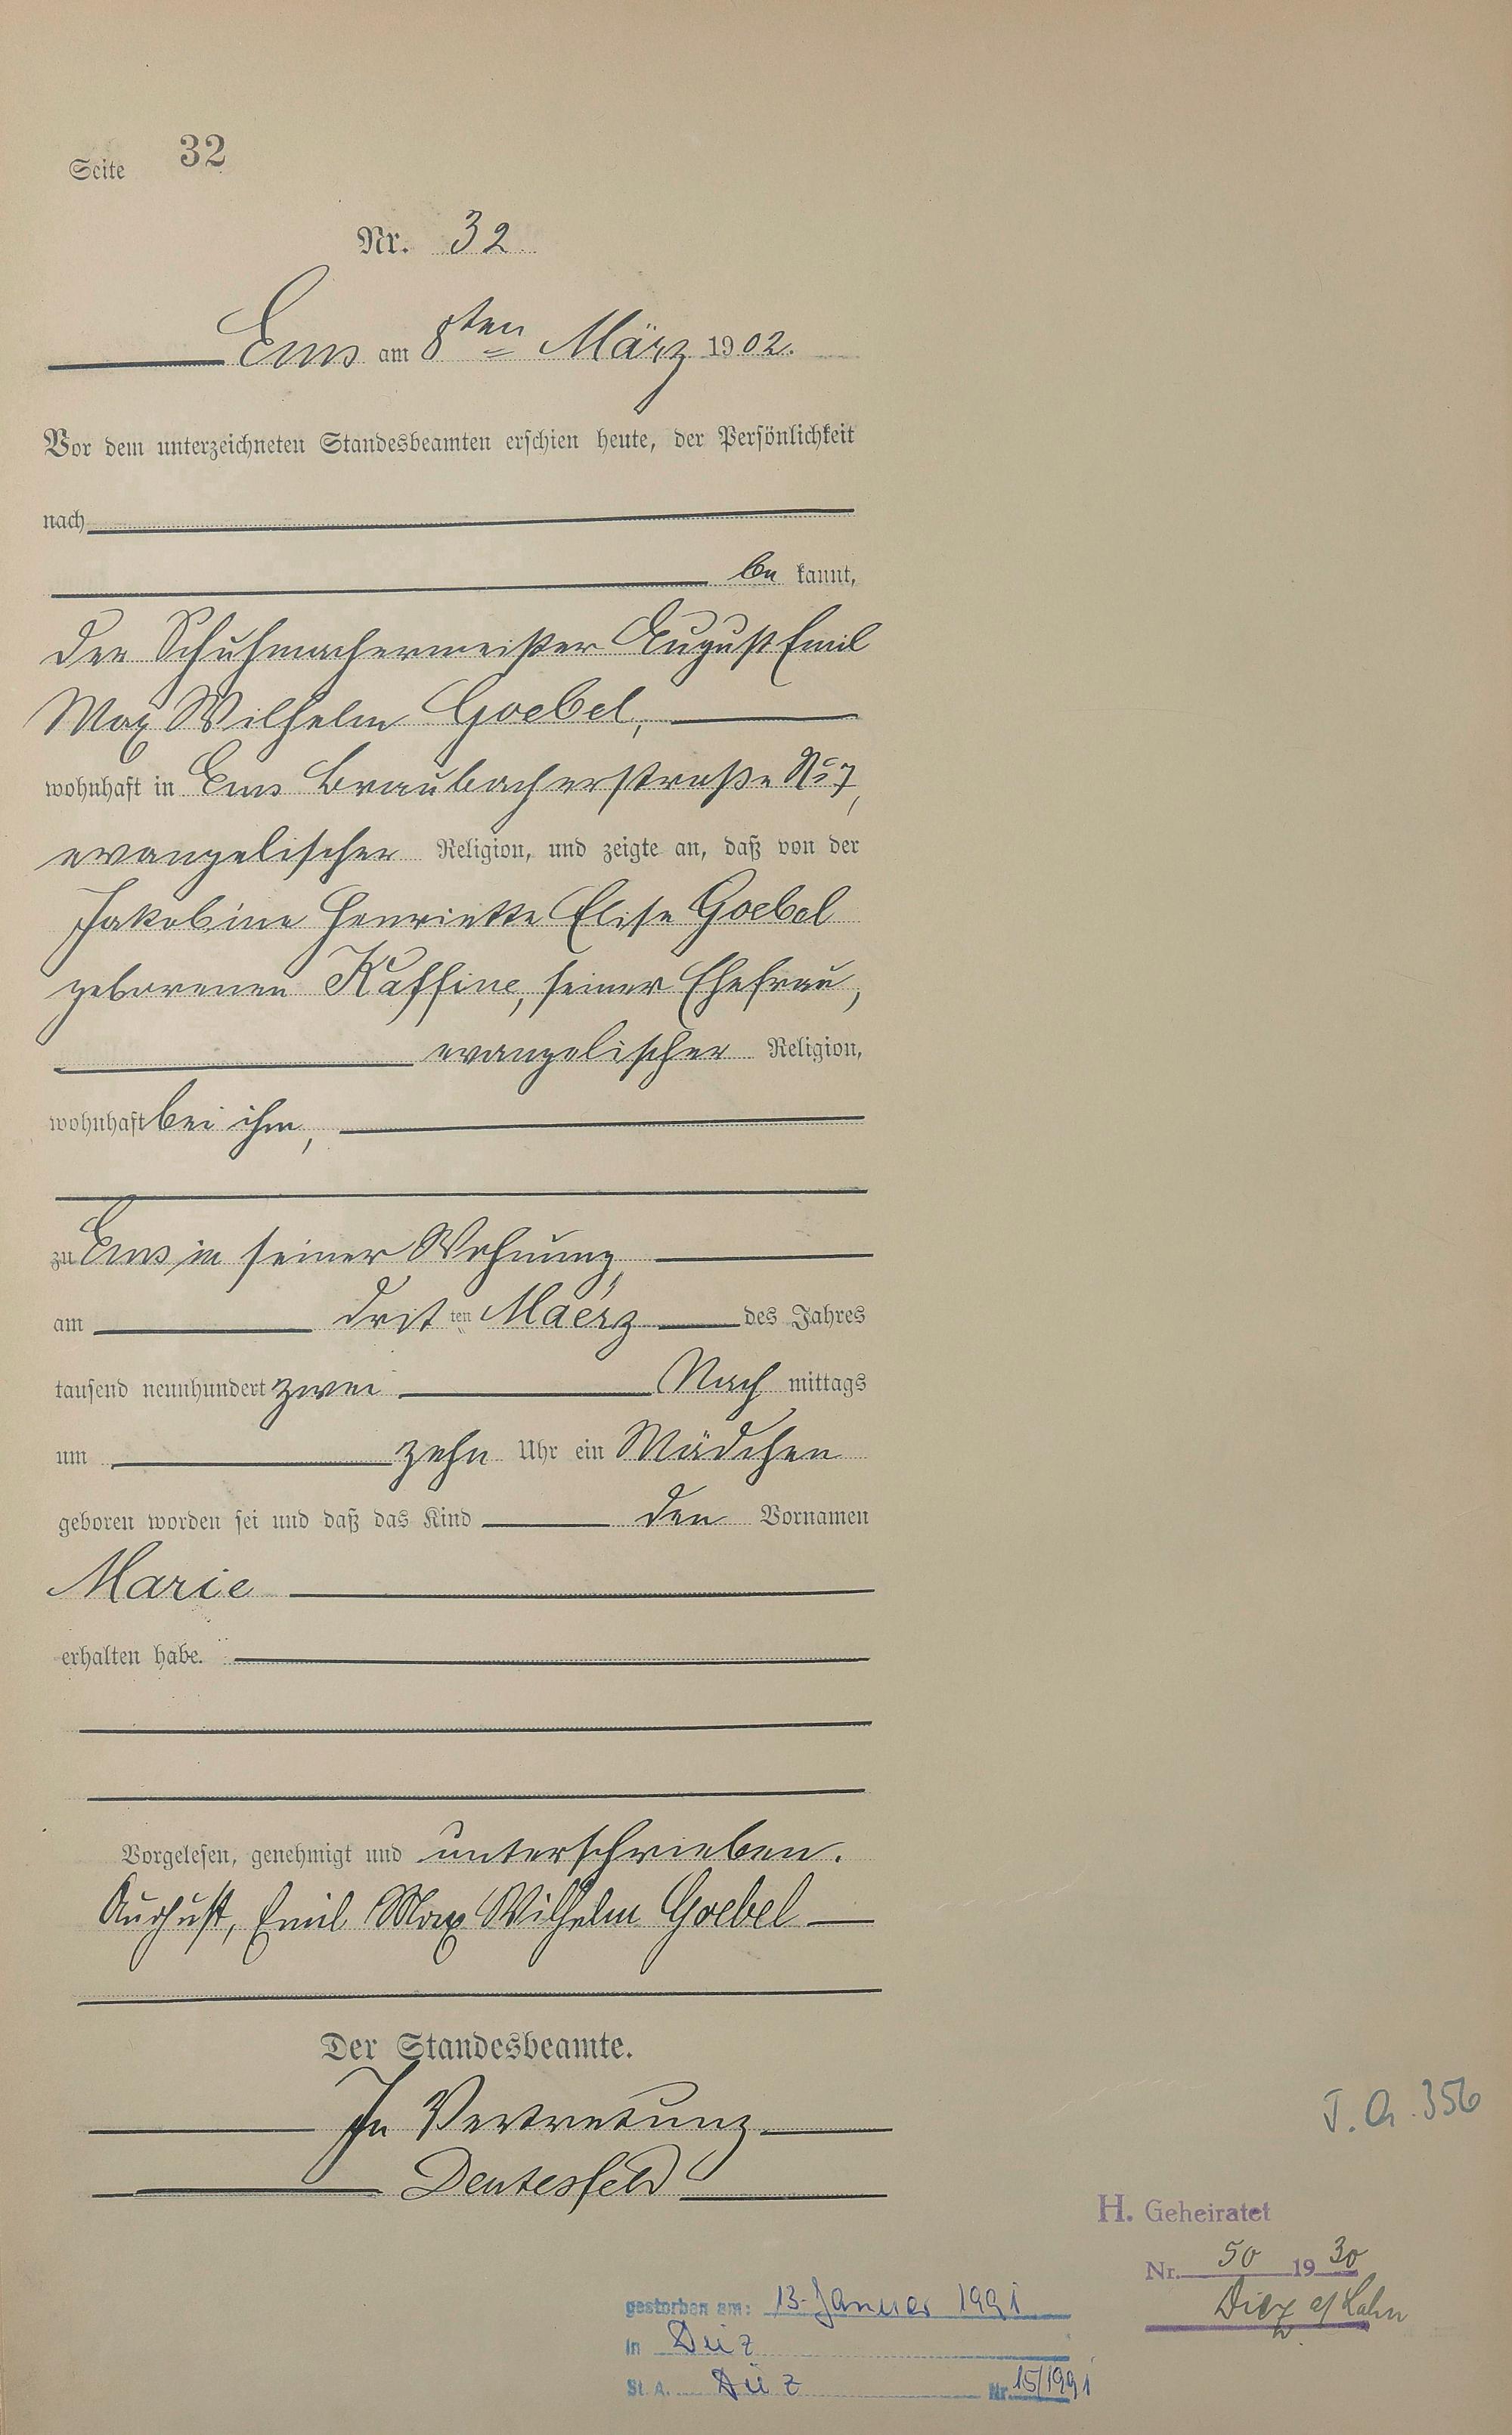 Seite 32
Nr. 32
Ems am 8ten März 1902.
Vor dem unterzeichneten Standesbeamten erschien heute, der Persönlichkeit
nach
be kannt,
der Schuhmachermeister August Emil
Max Wilhelm Goebel,
wohnhaft in Ems Braubacherstraße No 7,
evangelischer Religion, und zeigte an, daß von der
Jakobine Henriette Elise Goebel
geborenen Kaffine, seiner Ehefrau,
evangelischer Religion,
wohnhaft bei ihm,
zu Ems in seiner Wohnung,
am dritten Maerz des Jahres
tausend neunhundert zwei Nach mittags
um zehn Uhr ein Mädchen
geboren worden sei und daß das Kind den Vornamen
Marie
erhalten habe.
Vorgelesen, genehmigt und unterschrieben.
August, Emil Max Wilhelm Goebel
Der Standesbeamte.
In Vertretung
Deutesfeld
J. A. 356
H. Geheiratet
Nr. 50 1930
Diez a/ Lahn
gestorben am: 13. Januar 1991
in Diez
St. A. Diez Nr. 15/1991